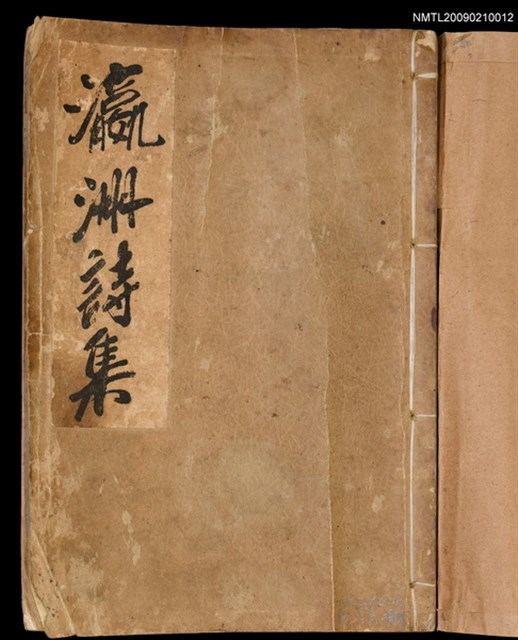 NMTL20090210012
瀛洲詩集